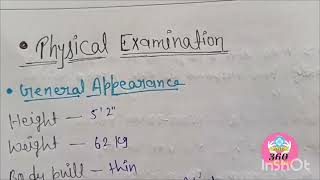 • Physical Examination
• General Appearance
Height — 5'2"
Weight — 62 kg
Body buill — thin
360
InShOt